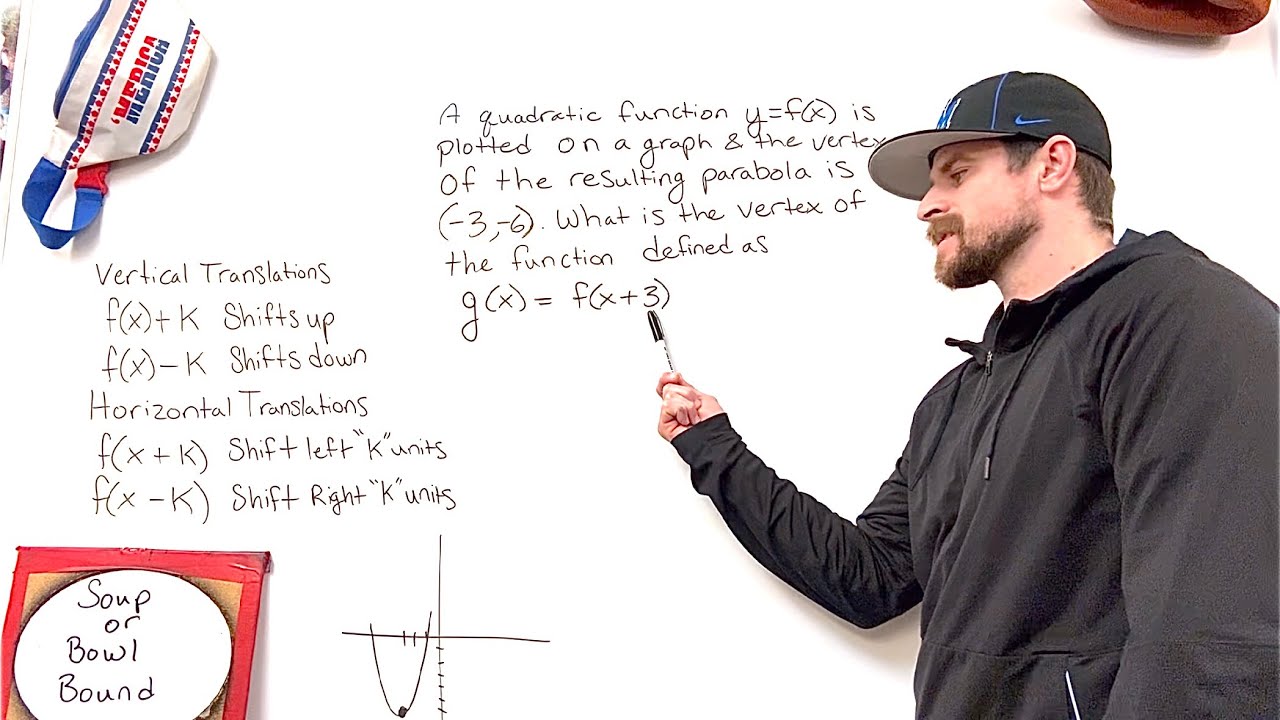 'MERICA
MERICA
A quadratic function y=f(x) is
plotted on a graph & the vertex
of the resulting parabola is
(-3,-6). What is the vertex of
the function defined as
g(x) = f(x+3)
Vertical Translations
f(x)+K Shifts up
f(x)-K Shifts down
Horizontal Translations
f(x+K) Shift left "K" units
f(x-K) Shift Right "K" units
Soup
or
Bowl
Bound